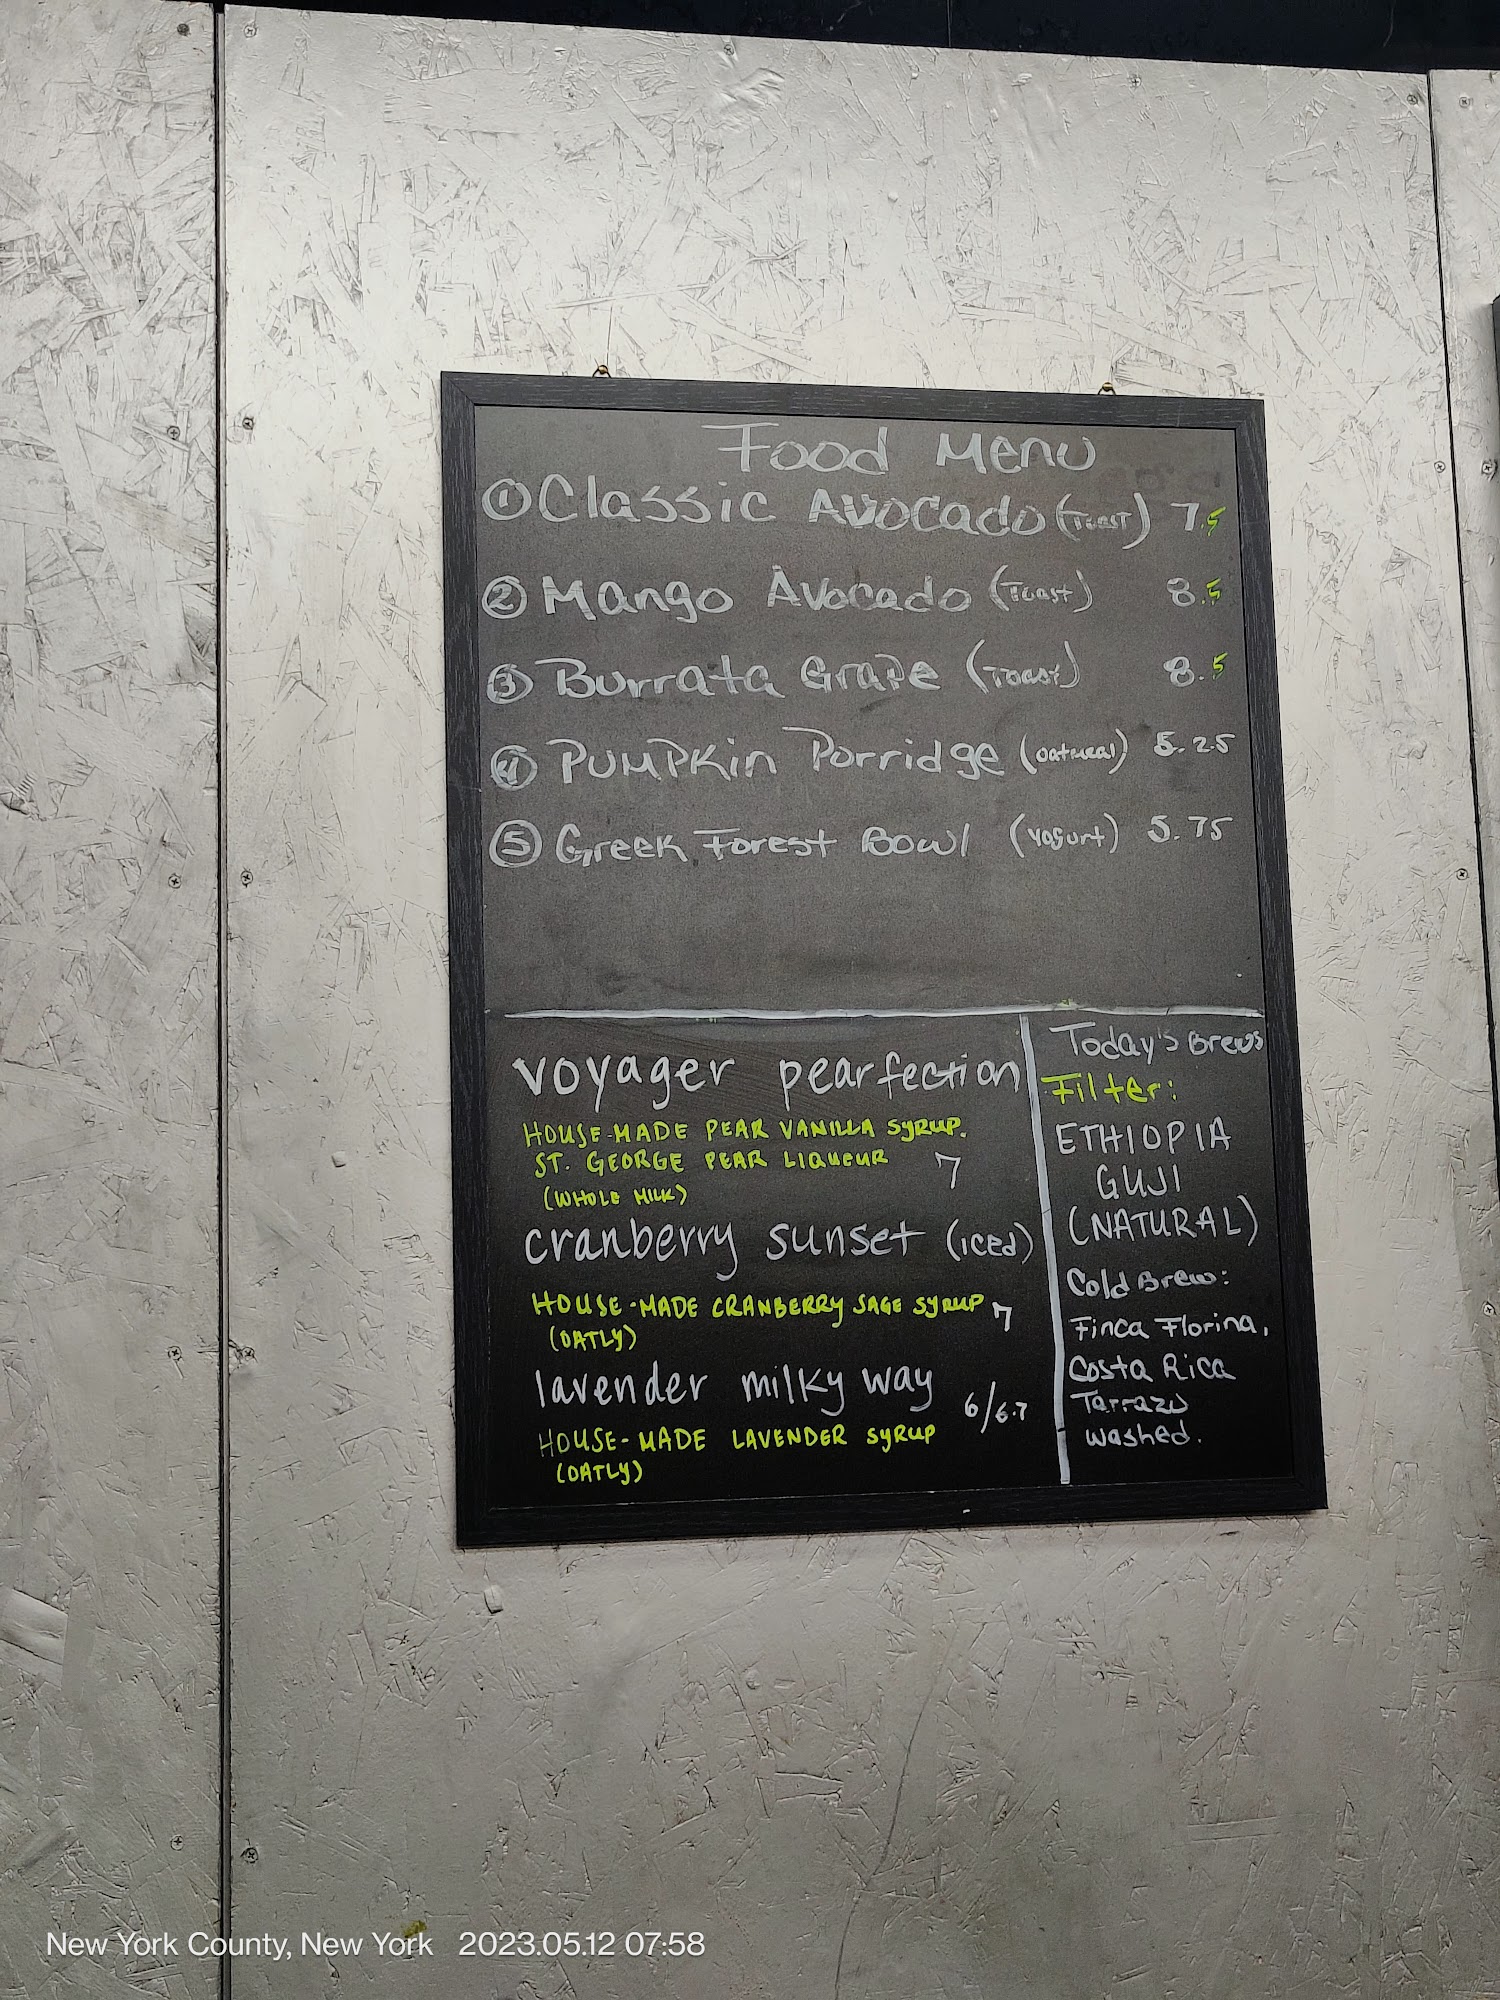 Food Menu
① Classic Avocado (Toast) 7.5
② Mango Avocado (Toast) 8.5
③ Burrata Grape (Toast) 8.5
④ PUMPKin Porridge (oatmeal) 5.25
⑤ Greek Forest Bowl (Yogurt) 5.75
voyager pearfection
HOUSE-MADE PEAR VANILLA SYRUP.
ST. GEORGE PEAR LIQUEUR 7
(WHOLE MILK)
cranberry sunset (iced)
HOUSE-MADE CRANBERRY SAGE SYRUP 7
(OATLY)
lavender milky way 6/6.7
HOUSE-MADE LAVENDER SYRUP
(OATLY)
Today's Brews
Filter:
ETHIOPIA
GUJI
(NATURAL)
Cold Brew:
Finca Florina,
Costa Rica
Tarrazu
washed.
New York County, New York 2023.05.12 07:58